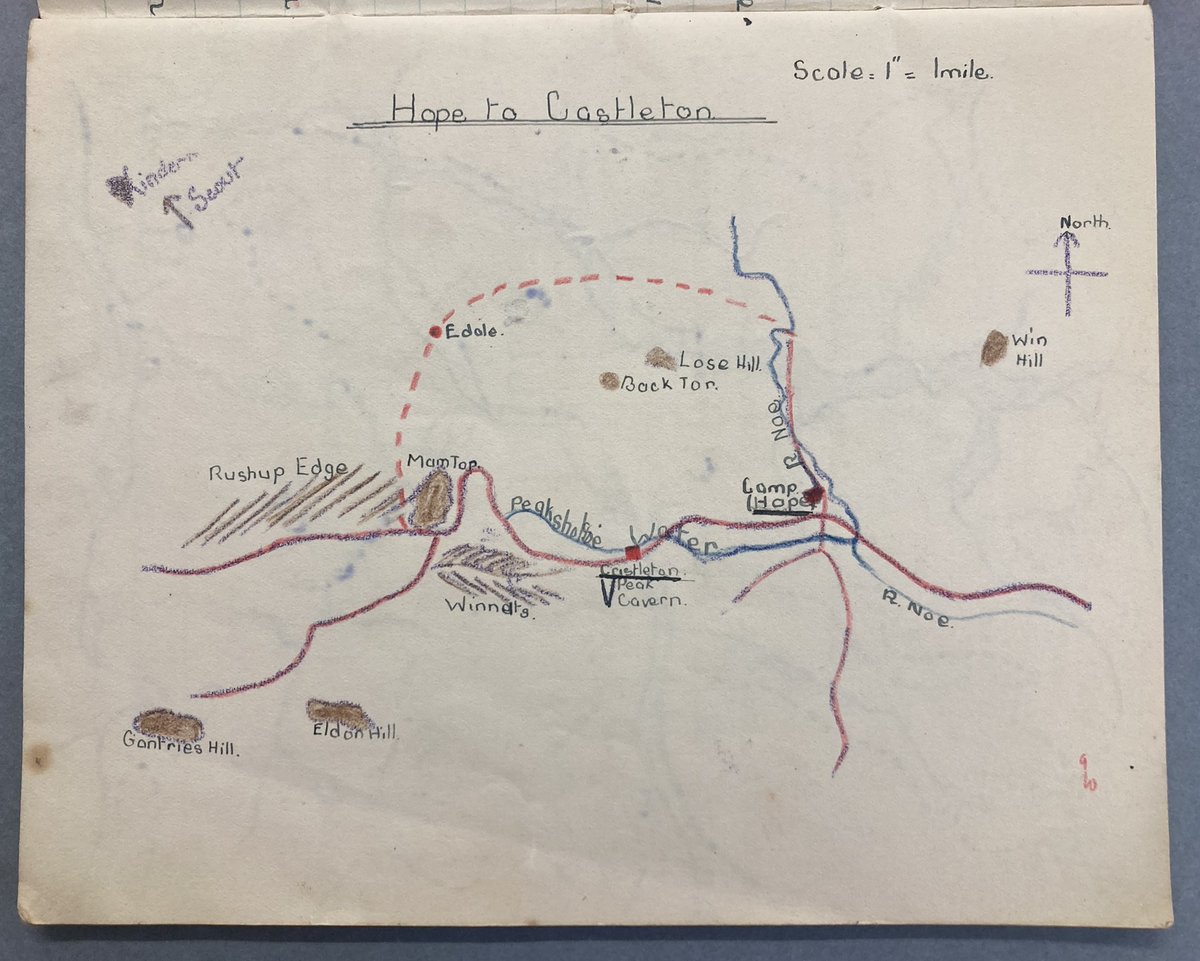 Scale = 1" = 1mile.
Hope to Castleton
Kinder
Scout
North.
Edale.
Lose Hill.
Back Tor.
Win
Hill
R. Noe
Rushup Edge
Mam Top
Camp
(Hope)
Peakshole Water
Castleton.
Peak
Cavern.
Winnats.
R. Noe.
Gontries Hill.
Eldon Hill.
9
10